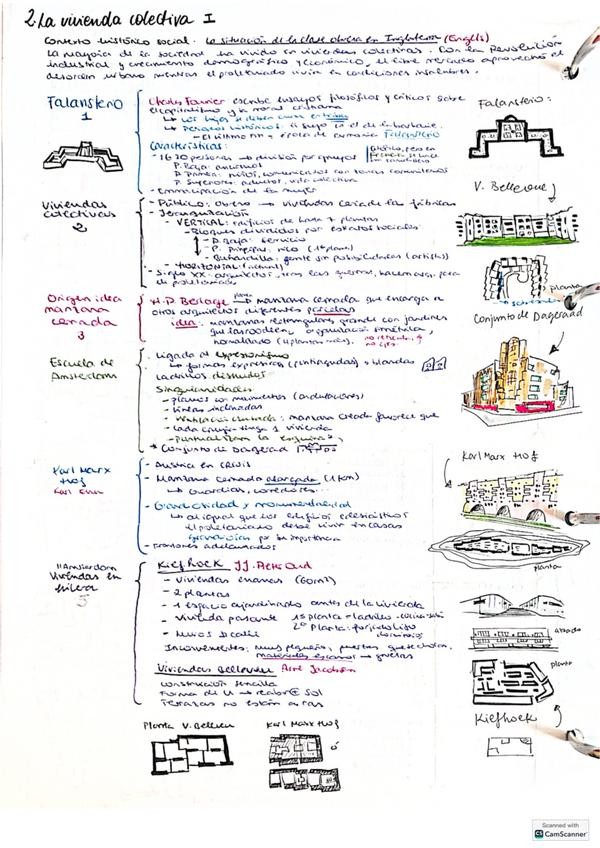 2. La vivienda colectiva I
Contexto histórico social. La situación de la clase obrera en Inglaterra (Engels)
La mayoría de la sociedad ha vivido en viviendas colectivas. Con la Revolución
industrial y crecimiento demográfico y económico, el libre mercado aprovechó el
desorden urbano mientras el proletariado vivía en condiciones insalubres.
Falansterio
1
Charles Fourier escribe ensayos filosóficos y críticos sobre
el capitalismo y la moral cristiana
Los hijos deben
Periodos históricos: el suyo es el de la barbarie
El último es la época de armonía Falansterio
Características:
- 1620 personas → división por grupos
P. Baja: ancianos
P. Primera: niños, comunicados con zonas comunitarias
P. Superiores: adultos, vida colectiva
- Emancipación de la mujer
Falansterio:
Viviendas
colectivas
2
- Público: obrero → viviendas cerca de las fábricas
- Jerarquización
- VERTICAL: edificios de hasta 7 plantas
- Bloques divididos por estratos sociales
- P. Baja: servicio
- P. Principal: rico (1ª planta)
- Buhardilla: gente sin posibilidades (artistas)
- HORIZONTAL
- Siglo XX: arquitectos, tras las guerras, hacen casas para
el proletariado
V. Bellevue
planta
Origen idea
manzana
cerrada
3
H.P. Berlage
manzana cerrada que encarga a
otros arquitectos diferentes parcelas
idea: manzanas rectangulares grandes con jardines
que las rodeen, organización simétrica,
Conjunto de Dageraad
Escuela de
Amsterdam
- Ligada al expresionismo
↳ formas expresivas (puntiagudas) o blandas
- Ladrillos desnudos
- Singularidades
- planos con movimientos (ondulaciones)
- líneas inclinadas
- Ventilación cruzada: manzana cerrada favorece que
cada cruzija tenga 1 vivienda
- puntualizan la esquina
* Conjunto de Dageraad
Karl Marx
Hof
Karl Ehn
- Austria en crisis
- Manzana cerrada alargada (1km)
↳ guarderías, comedores...
- Grandiosidad y monumentalidad
↳ al igual que los edificios eclesiásticos
el proletariado debe vivir en casas
grandiosas por su importancia
- Torreones adelantados
Karl Marx Hof
planta
Amsterdam
Viviendas en
hilera
5
Kiefhoek J.J. Pieter Oud
- viviendas enanas (60m²)
- 2 plantas
- 1 espacio ajardinado antes de la vivienda
- Vivienda pasante 1ª planta - ladrillo
2ª Planta: forjado liso
dormitorios
- Muros de calle
Inconvenientes: muy pequeño, puertas que se chocan,
materiales escasos → grietas
alzado
planta
Kiefhoek
Viviendas Bellevue Arne Jacobsen
construcción sencilla
Forma de U → recibir el Sol
Terrazas no están a ras
Planta V. Bellevue
Karl Marx Hof
ó
Scanned with
CS CamScanner